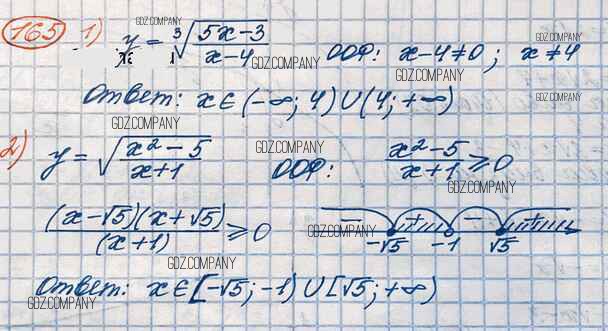 165 1) y = ∛((5x-3)/(x-4)) ООФ: x-4≠0; x≠4
Ответ: x∈(-∞; 4)∪(4; +∞)
2) y = √((x²-5)/(x+1)) ООФ: (x²-5)/(x+1) ≥ 0
((x-√5)(x+√5))/(x+1) ≥ 0 - + - + -√5 -1 √5
Ответ: x∈[-√5; -1)∪[√5; +∞)
GDZ.COMPANY
GDZ.COMPANY
GDZ.COMPANY
GDZ.COMPANY
GDZ.COMPANY
GDZ.COMPANY
GDZ.COMPANY
GDZ.COMPANY
GDZ.COMPANY
GDZ.COMPANY
GDZ.COMPANY
GDZ.COMPANY